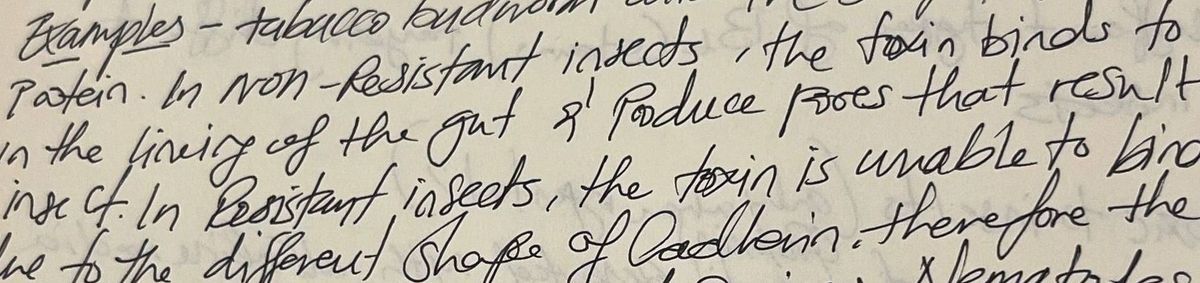 Examples - tobacco budworm
Protein. In Non-Resistant insects, the toxin binds to
in the lining of the gut & Produce pores that result
insect. In Resistant insects, the toxin is unable to bind
to the different Shape of Cadherin. therefore the
Nematodes